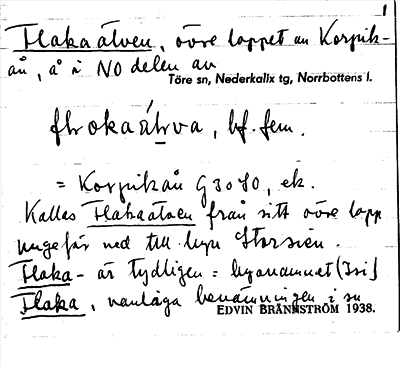 1
Flakaälven, övre loppet av Korpik-
ån, å i NO delen av
Töre sn, Nederkalix tg, Norrbottens l.
bf. fem.
= Korpikån G 30 ek.
Kallas Flakaälven från sitt övre lopp
ungefär ned till byn Storsien.
Flaka- är tydligen = byanamnet
Flaka, vanliga benämningen i sn
EDVIN BRÄNNSTRÖM 1938.